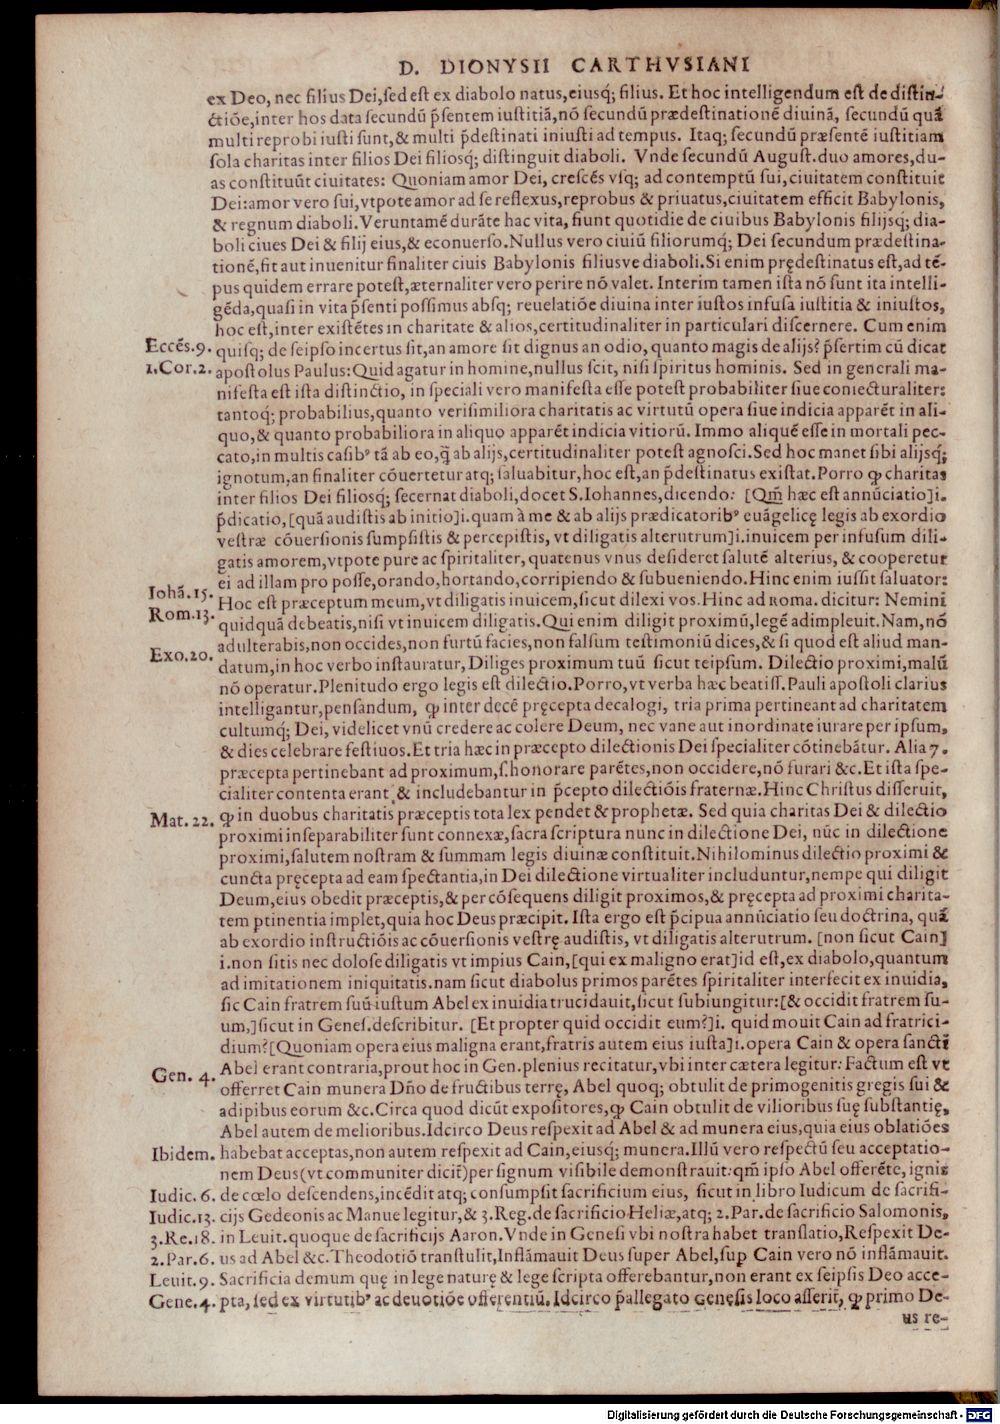 D. DIONYSII CARTHVSIANI
ex Deo, nec filius Dei,sed est ex diabolo natus,eiusq́; filius. Et hoc intelligendum est de distin-
ctiõe,inter hos data secundũ p̄sentem iustitiã,nõ secundũ prædestinationẽ diuinã, secundũ quã
multi reprobi iusti sunt,& multi p̄destinati iniusti ad tempus. Itaq; secundũ præsentẽ iustitiam
sola charitas inter filios Dei filiosq́; distinguit diaboli. Vnde secundũ August.duo amores,du-
as constituũt ciuitates: Quoniam amor Dei, crescẽs vsq; ad contemptũ sui,ciuitatem constituit
Dei:amor vero sui,vtpote amor ad se reflexus,reprobus & priuatus,ciuitatem efficit Babylonis,
& regnum diaboli.Veruntamẽ durãte hac vita, fiunt quotidie de ciuibus Babylonis filijsq́; dia-
boli ciues Dei & filij eius,& econuerso.Nullus vero ciuiũ filiorumq́; Dei secundum prædestina-
tionẽ,fit aut inuenitur finaliter ciuis Babylonis filiusve diaboli.Si enim prędestinatus est,ad tẽ-
pus quidem errare potest,æternaliter vero perire nõ valet. Interim tamen ista nõ sunt ita intelli-
gẽda,quasi in vita p̄senti possimus absq; reuelatiõe diuina inter iustos infusa iustitia & iniustos,
hoc est,inter existẽtes in charitate & alios,certitudinaliter in particulari discernere. Cum enim
Eccẽs.9. quisq; de seipso incertus sit,an amore sit dignus an odio, quanto magis de alijs? p̄sertim cũ dicat
1.Cor.2. apostolus Paulus:Quid agatur in homine,nullus scit, nisi spiritus hominis. Sed in generali ma-
nifesta est ista distinctio, in speciali vero manifesta esse potest probabiliter siue coniecturaliter:
tantoq́; probabilius,quanto verisimiliora charitatis ac virtutũ opera siue indicia apparẽt in ali-
quo,& quanto probabiliora in aliquo apparẽt indicia vitiorũ. Immo aliquẽ esse in mortali pec-
cato,in multis casibꝰ tã ab eo,q̃ ab alijs,certitudinaliter potest agnosci.Sed hoc manet sibi alijsq́;
ignotum,an finaliter cõuertetur atq; saluabitur,hoc est,an p̄destinatus existat. Porro ꝙ charitas
inter filios Dei filiosq́; secernat diaboli,docet S.Iohannes,dicendo: [Qm̃ hæc est annũciatio]i.
p̄dicatio,[quã audistis ab initio]i.quam à me & ab alijs prædicatoribꝰ euãgelicę legis ab exordio
vestræ cõuersionis sumpsistis & percepistis, vt diligatis alterutrum]i.inuicem per infusum dili-
gatis amorem,vtpote pure ac spiritaliter, quatenus vnus desideret salutẽ alterius, & cooperetur
ei ad illam pro posse,orando,hortando,corripiendo & subueniendo.Hinc enim iussit saluator:
Iohã.15. Hoc est præceptum meum,vt diligatis inuicem,sicut dilexi vos.Hinc ad Roma. dicitur: Nemini
Rom.13. quidquã debeatis,nisi vt inuicem diligatis.Qui enim diligit proximũ,legẽ adimpleuit.Nam,nõ
adulterabis,non occides,non furtũ facies,non falsum testimoniũ dices,& si quod est aliud man-
Exo.20. datum,in hoc verbo instauratur,Diliges proximum tuũ sicut teipsum. Dilectio proximi,malũ
nõ operatur.Plenitudo ergo legis est dilectio.Porro,vt verba hæc beatiss.Pauli apostoli clarius
intelligantur,pensandum, ꝙ inter decẽ pręcepta decalogi, tria prima pertineant ad charitatem
cultumq́; Dei, videlicet vnũ credere ac colere Deum, nec vane aut inordinate iurare per ipsum,
& dies celebrare festiuos.Et tria hæc in præcepto dilectionis Dei specialiter cõtinebãtur. Alia 7.
præcepta pertinebant ad proximum,s.honorare parẽtes,non occidere,nõ furari &c.Et ista spe-
cialiter contenta erant & includebantur in p̄cepto dilectiõis fraternæ.Hinc Christus disseruit,
Mat.22. ꝙ in duobus charitatis præceptis tota lex pendet & prophetæ. Sed quia charitas Dei & dilectio
proximi inseparabiliter sunt connexæ,sacra scriptura nunc in dilectione Dei, nũc in dilectione
proximi,salutem nostram & summam legis diuinæ constituit.Nihilominus dilectio proximi &
cuncta pręcepta ad eam spectantia,in Dei dilectione virtualiter includuntur,nempe qui diligit
Deum,eius obedit præceptis,& per cõsequens diligit proximos,& pręcepta ad proximi charita-
tem ptinentia implet,quia hoc Deus præcipit. Ista ergo est p̄cipua annũciatio seu doctrina, quã
ab exordio instructiõis ac cõuersionis vestrę audistis, vt diligatis alterutrum. [non sicut Cain]
i.non sitis nec dolose diligatis vt impius Cain,[qui ex maligno erat]id est,ex diabolo,quantum
ad imitationem iniquitatis.nam sicut diabolus primos parẽtes spiritaliter interfecit ex inuidia,
sic Cain fratrem suũ iustum Abel ex inuidia trucidauit,sicut subiungitur:[& occidit fratrem su-
um,]sicut in Genes.describitur. [Et propter quid occidit eum?]i. quid mouit Cain ad fratrici-
dium?[Quoniam opera eius maligna erant,fratris autem eius iusta]i.opera Cain & opera sancti
Gen. 4. Abel erant contraria,prout hoc in Gen.plenius recitatur,vbi inter cætera legitur: Factum est vt
offerret Cain munera Dño de fructibus terrę, Abel quoq; obtulit de primogenitis gregis sui &
adipibus eorum &c.Circa quod dicũt expositores,ꝙ Cain obtulit de vilioribus suę substantię,
Abel autem de melioribus.Idcirco Deus respexit ad Abel & ad munera eius,quia eius oblatiões
Ibidem. habebat acceptas,non autem respexit ad Cain,eiusq́; munera.Illũ vero respectũ seu acceptatio-
nem Deus(vt communiter dicit̃)per signum visibile demonstrauit:qm̃ ipso Abel offerẽte, ignis
Iudic. 6. de cœlo descendens,incẽdit atq; consumpsit sacrificium eius, sicut in libro Iudicum de sacrifi-
Iudic.13. cijs Gedeonis ac Manue legitur,& 3.Reg.de sacrificio Heliæ,atq; 2.Par.de sacrificio Salomonis,
3.Re.18. in Leuit.quoque de sacrificijs Aaron.Vnde in Genesi vbi nostra habet translatio,Respexit De-
2.Par.6. us ad Abel &c.Theodotiõ transtulit,Inflãmauit Deus super Abel,sup Cain vero nõ inflãmauit.
Leuit.9. Sacrificia demum quę in lege naturę & lege scripta offerebantur,non erant ex seipsis Deo acce-
Gene.4. pta, sed ex virtutibꝰ ac deuotiõe offerentiũ. Idcirco p̄allegato Genesis loco asserit̃, ꝙ primo De-
us re-
Digitalisierung gefördert durch die Deutsche Forschungsgemeinschaft - DFG